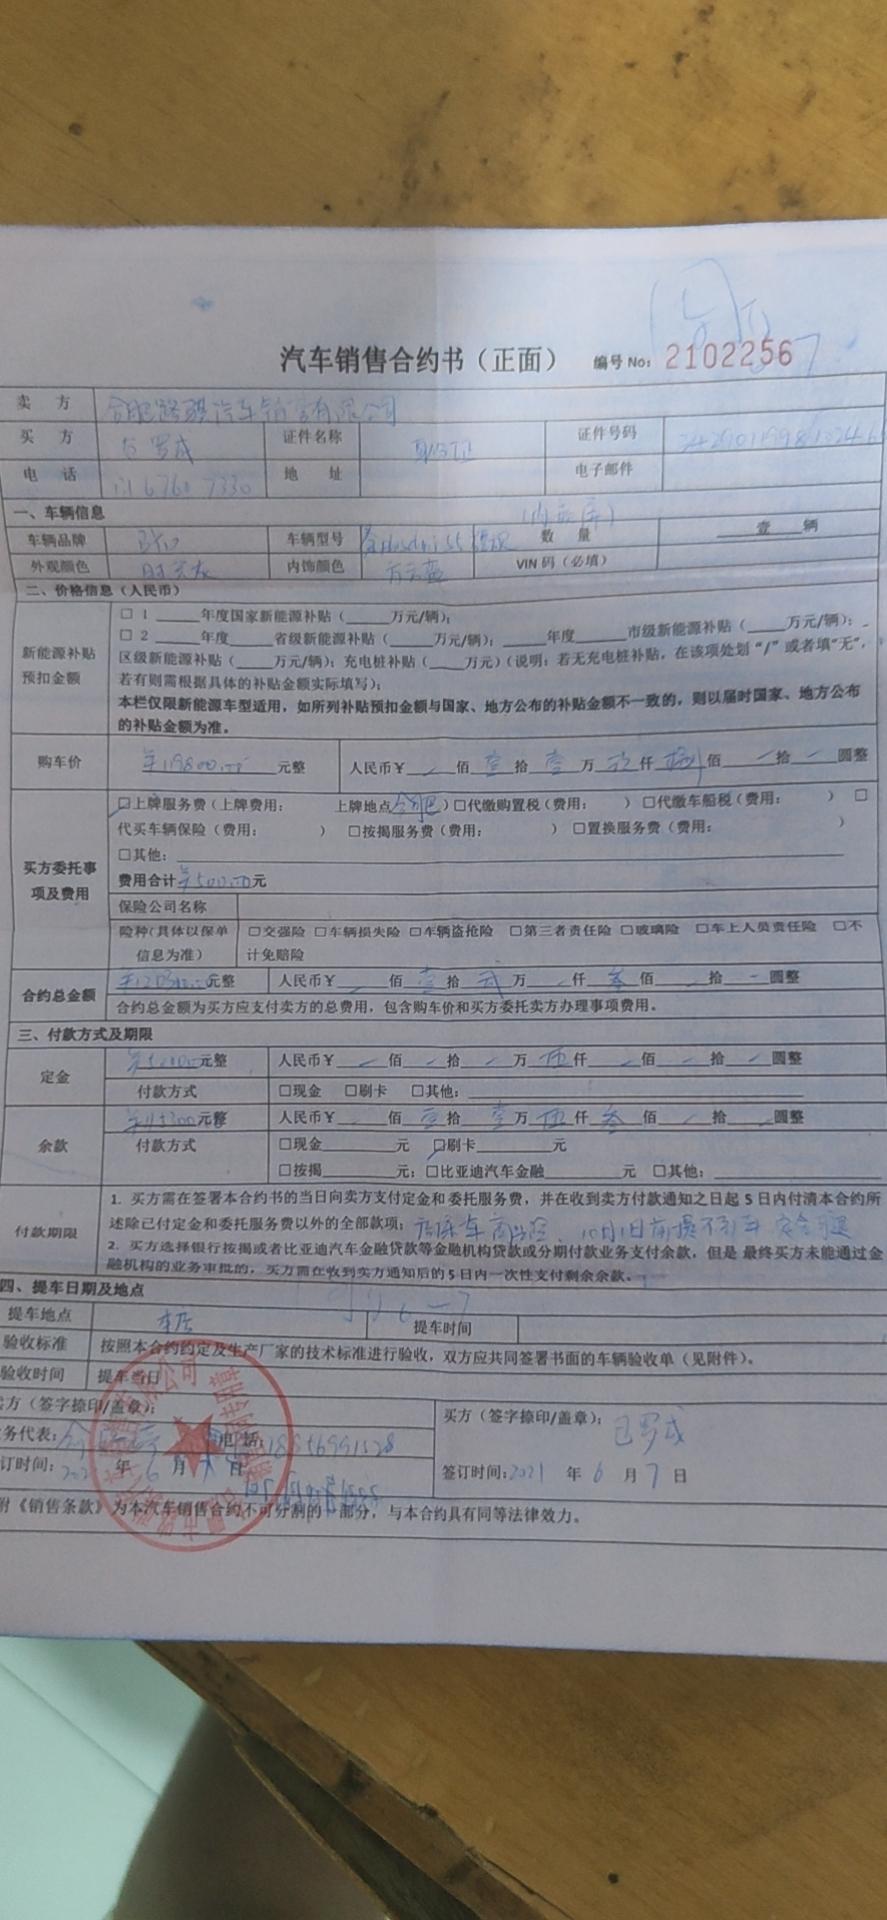 汽车销售合约书（正面） 编号No: 2102256
卖 方 合肥路骐汽车销售有限公司
买 方 证件名称 身份证 证件号码
电 话 地 址 电子邮件
一、车辆信息
车辆品牌 BYD 车辆型号 数 量 壹 辆
外观颜色 内饰颜色 VIN码（必填）
二、价格信息（人民币）
新能源补贴预扣金额
□ 1 ____年度国家新能源补贴（____万元/辆）;
□ 2 ____年度____省级新能源补贴（____万元/辆）; ____年度____市级新能源补贴（____万元/辆）;
区级新能源补贴（____万元/辆）; 充电桩补贴（____万元）（说明: 若无充电桩补贴, 在该项处划“/”或者填“无”,
若有则需根据具体的补贴金额实际填写）;
本栏仅限新能源车型适用, 如所列补贴预扣金额与国家、地方公布的补贴金额不一致的, 则以届时国家、地方公布
的补贴金额为准。
购车价 元整 人民币¥ 佰 壹 拾 壹 万 仟 捌 佰 拾 圆整
买方委托事项及费用
□上牌服务费（上牌费用: 上牌地点 合肥 ）□代缴购置税（费用: ）□代缴车船税（费用: ）□
代买车辆保险（费用: ） □按揭服务费（费用: ） □置换服务费（费用: ）
□其他:
费用合计 ¥500.00 元
保险公司名称
险种（具体以保单信息为准） □交强险 □车辆损失险 □车辆盗抢险 □第三者责任险 □玻璃险 □车上人员责任险 □不
计免赔险
合约总金额 元整 人民币¥ 佰 壹 拾 贰 万 仟 叁 佰 拾 圆整
合约总金额为买方应支付卖方的总费用, 包含购车价和买方委托卖方办理事项费用。
三、付款方式及期限
定金 元整 人民币¥ 佰 拾 万 伍 仟 佰 拾 圆整
付款方式 □现金 □刷卡 □其他:
余款 元整 人民币¥ 佰 壹 拾 壹 万 伍 仟 叁 佰 拾 圆整
付款方式 □现金____元 □刷卡____元
□按揭____元; □比亚迪汽车金融____元 □其他:
付款期限
1. 买方需在签署本合约书的当日向卖方支付定金和委托服务费, 并在收到卖方付款通知之日起5日内付清本合约所
述除已付定金和委托服务费以外的全部款项;
2. 买方选择银行按揭或者比亚迪汽车金融贷款等金融机构贷款或分期付款业务支付余款, 但是 最终买方未能通过金
融机构的业务审批的, 买方需在收到卖方通知后的5日内一次性支付剩余余款。
四、提车日期及地点
提车地点 本店 提车时间
验收标准 按照本合约约定及生产厂家的技术标准进行验收, 双方应共同签署书面的车辆验收单（见附件）。
验收时间 提车当日
方（签字捺印/盖章）: 买方（签字捺印/盖章）:
务代表: 电话:
订时间: 年 6 月 日 签订时间: 2021 年 6 月 7 日
附《销售条款》为本汽车销售合约不可分割的一部分, 与本合约具有同等法律效力。